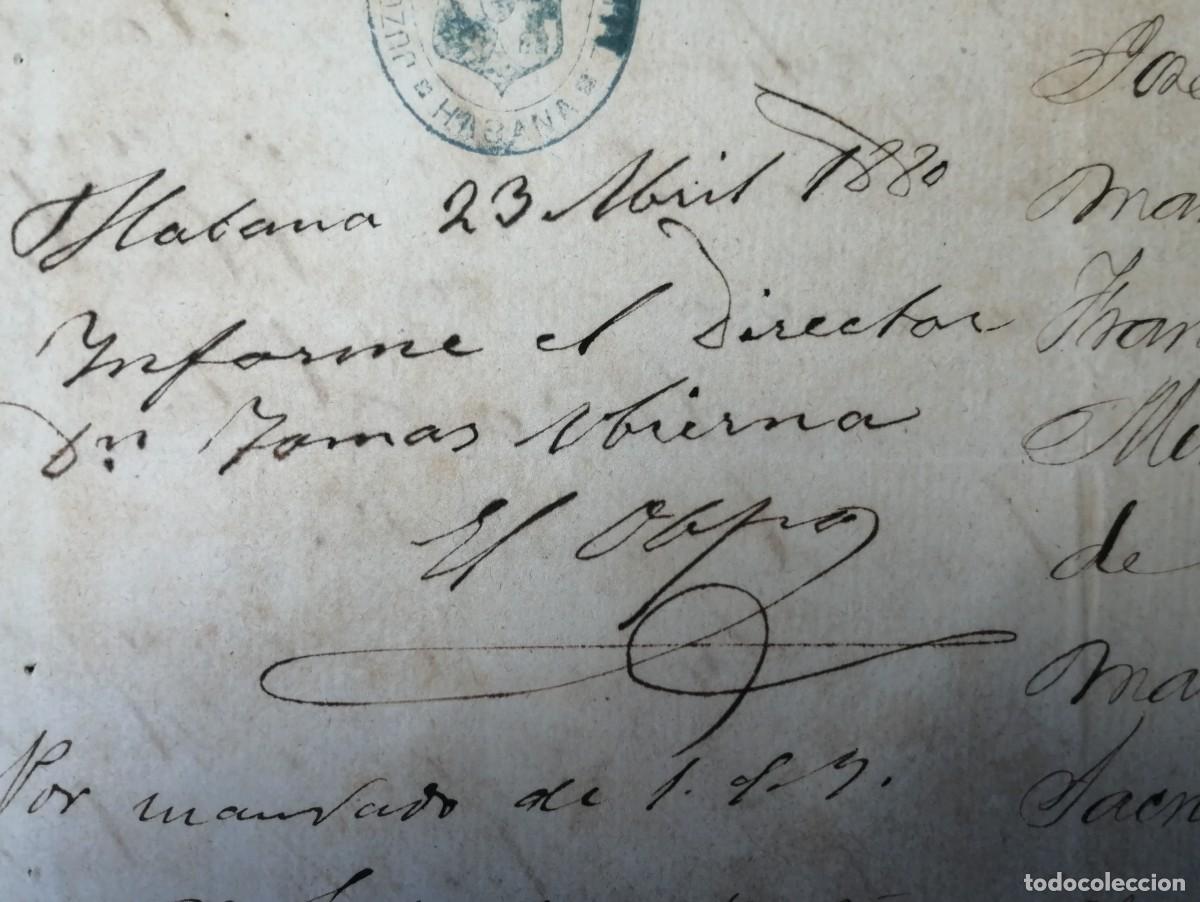 JUZ
HABANA
Habana 23 Abril 1880
Informe el Director
Dn. Tomas Ubierna
El Obpo
Por mandado de S. S. Y.
José
Ma
Fran
de
Ma
Sacr
todocoleccion